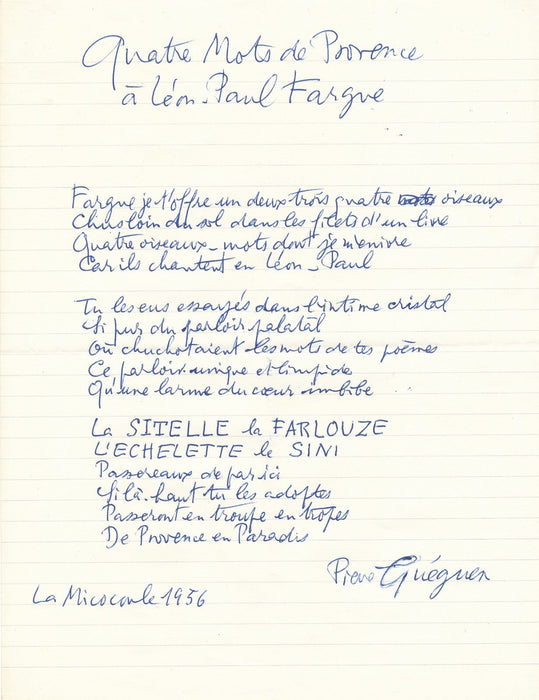 Quatre Mots de Provence
à Léon-Paul Fargue
Fargue je t'offre un deux trois quatre oiseaux
Chus loin du sol dans les filets d'un livre
Quatre oiseaux-mots dont je m'enivre
Car ils chantent en Léon-Paul
Tu les eus essayés dans l'intime cristal
Si pur du parloir palatal
Où chuchotaient les mots de tes poèmes
Ce parloir unique et limpide
Qu'une larme du cœur imbibe
La SITELLE la FARLOUZE
L'ECHELETTE le SINI
Passereaux de par ici
Si là-haut tu les adoptes
Passeront en troupe en tropes
De Provence en Paradis
Pierre Guéguen
La Micocoule 1956